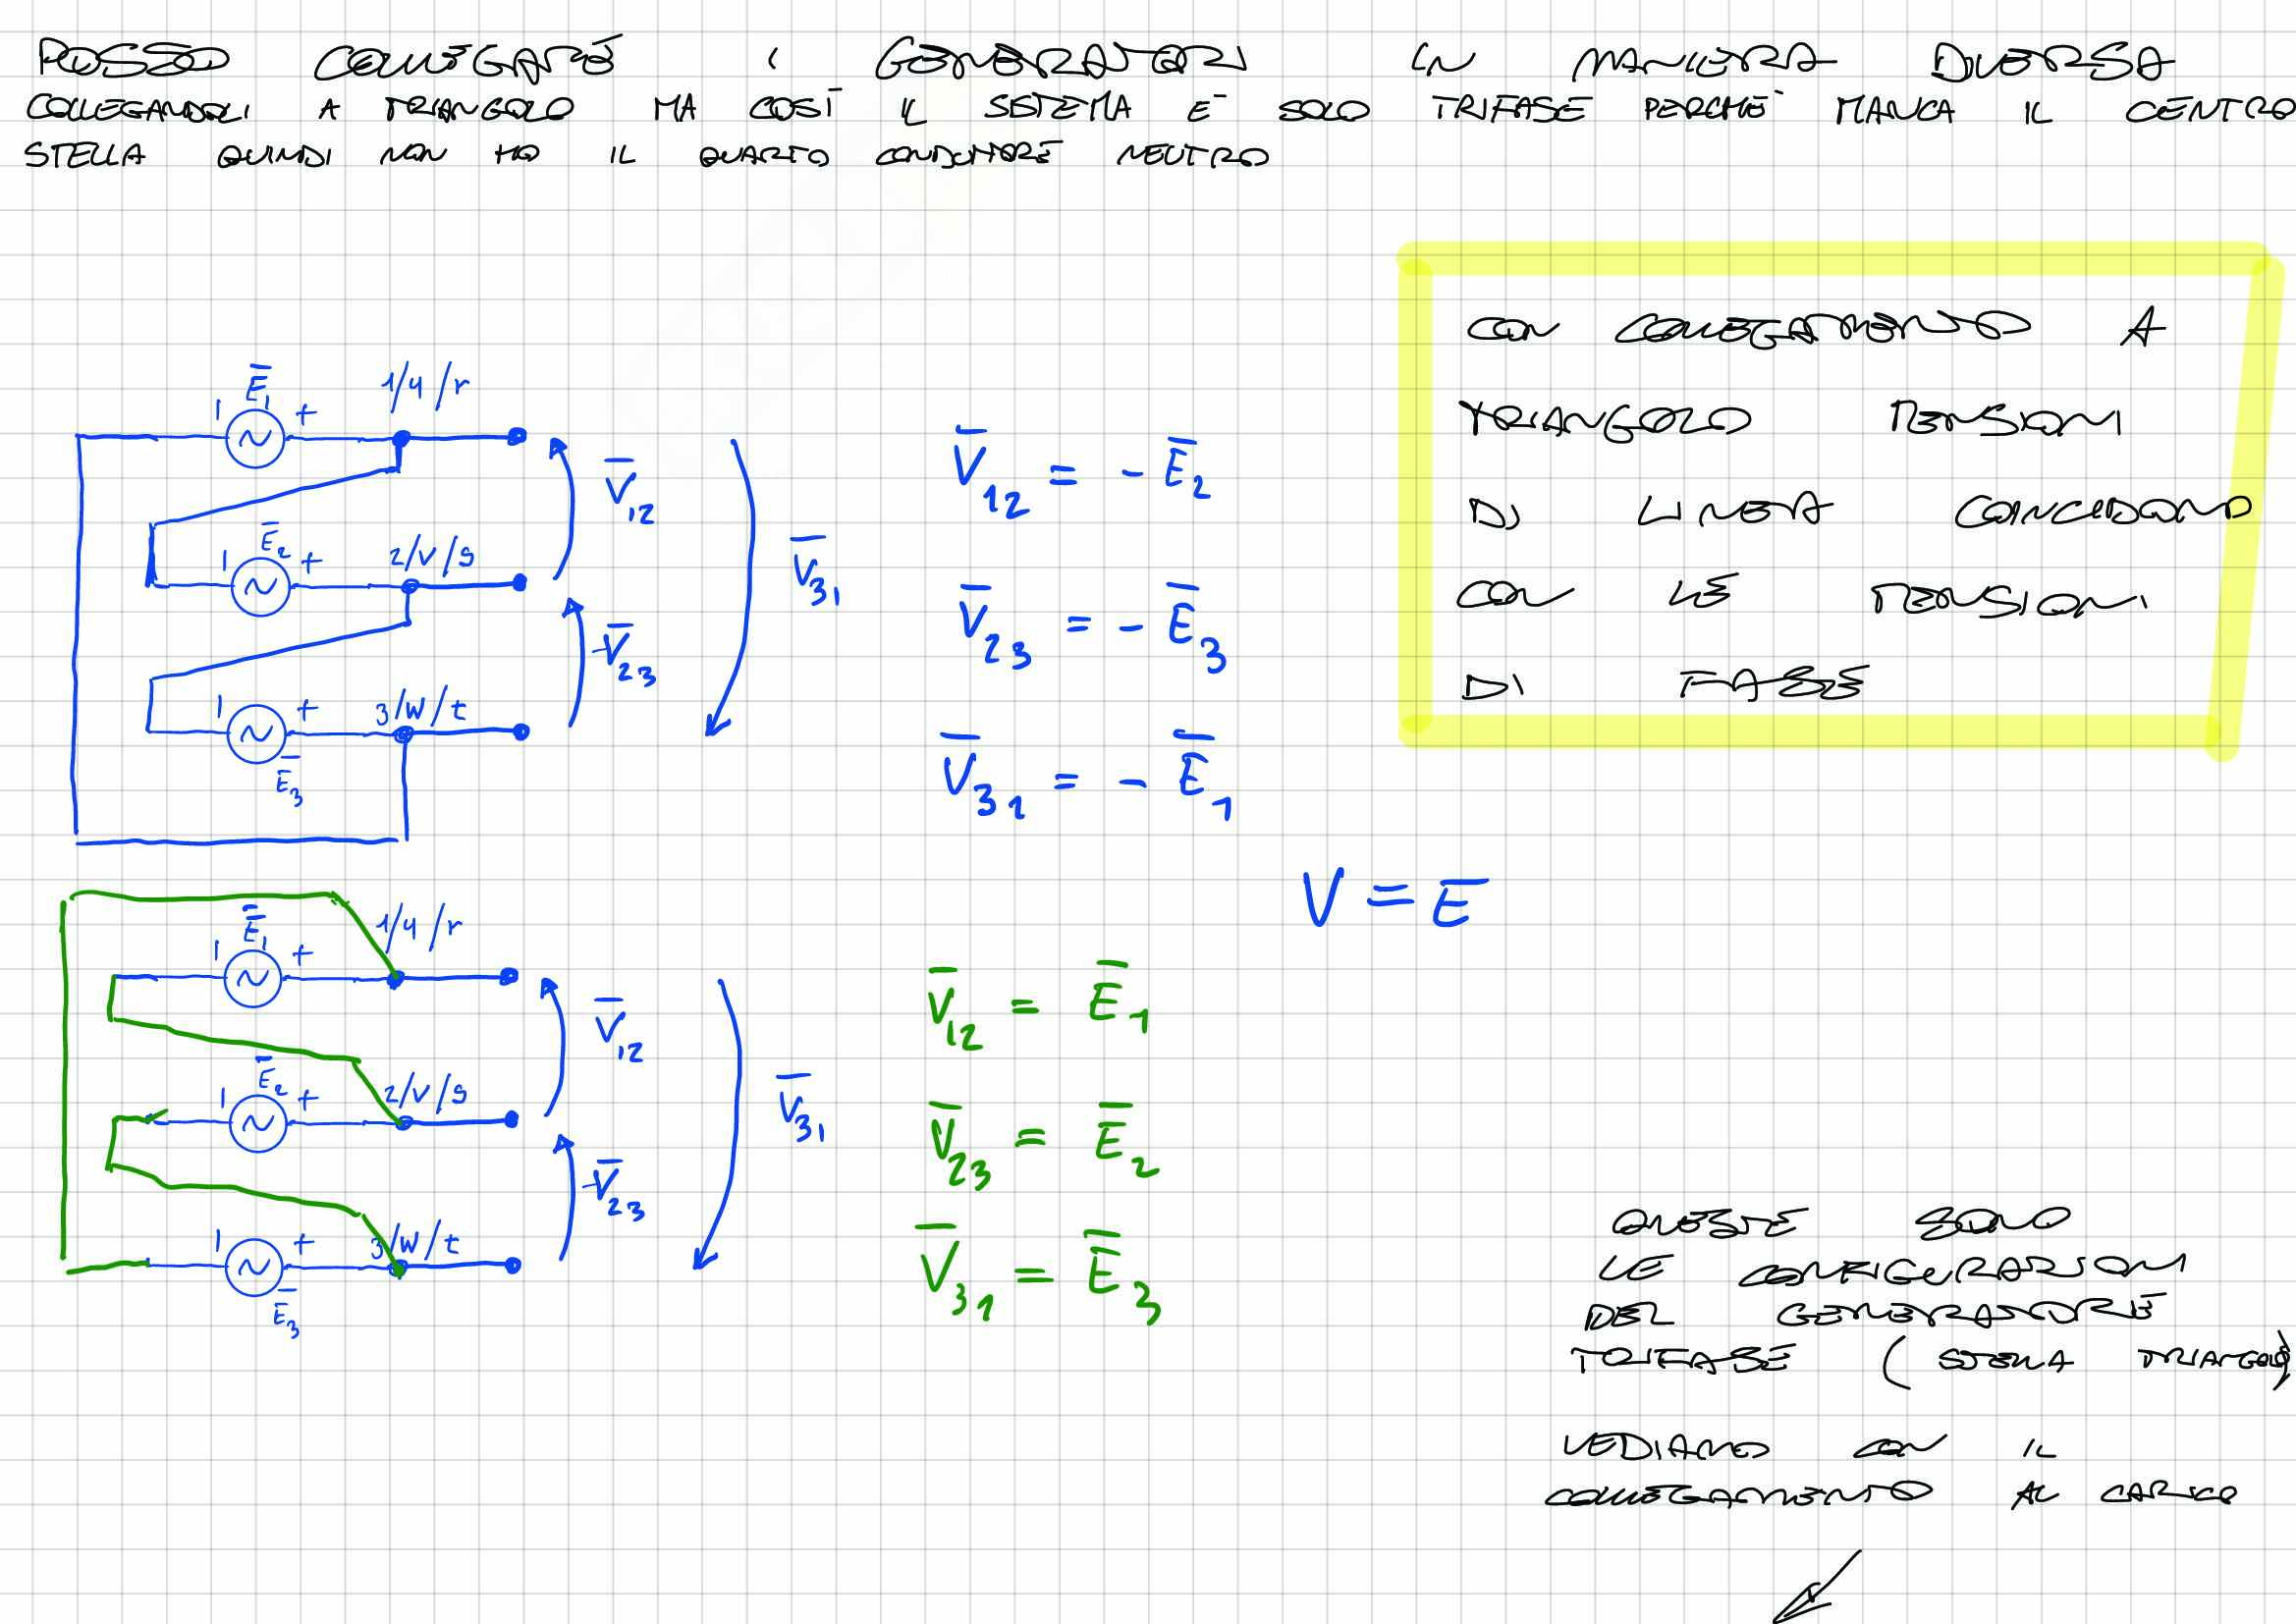 POSSO COLLEGARE I GENERATORI IN MANIERA DIVERSA
COLLEGANDOLI A TRIANGOLO MA COSÌ IL SISTEMA È SOLO TRIFASE PERCHÉ MANCA IL CENTRO
STELLA QUINDI NON HO IL QUARTO CONDUTTORE NEUTRO
CON COLLEGAMENTO A
TRIANGOLO TENSIONI
DI LINEA COINCIDONO
CON LE TENSIONI
DI FASE
Ē₁ 1/4/r
Ē₂ 2/V/S
Ē₃ 3/W/t
V̄₁₂
V̄₂₃
V̄₃₁
V̄₁₂ = - Ē₂
V̄₂₃ = - Ē₃
V̄₃₁ = - Ē₁
V = E
Ē₁ 1/4/r
Ē₂ 2/V/S
Ē₃ 3/W/t
V̄₁₂
V̄₂₃
V̄₃₁
V̄₁₂ = Ē₁
V̄₂₃ = Ē₂
V̄₃₁ = Ē₃
QUESTE SONO
LE CONFIGURAZIONI
DEL GENERATORE
TRIFASE (STELLA TRIANGOLO)
VEDIAMO CON IL
COLLEGAMENTO AL CARICO